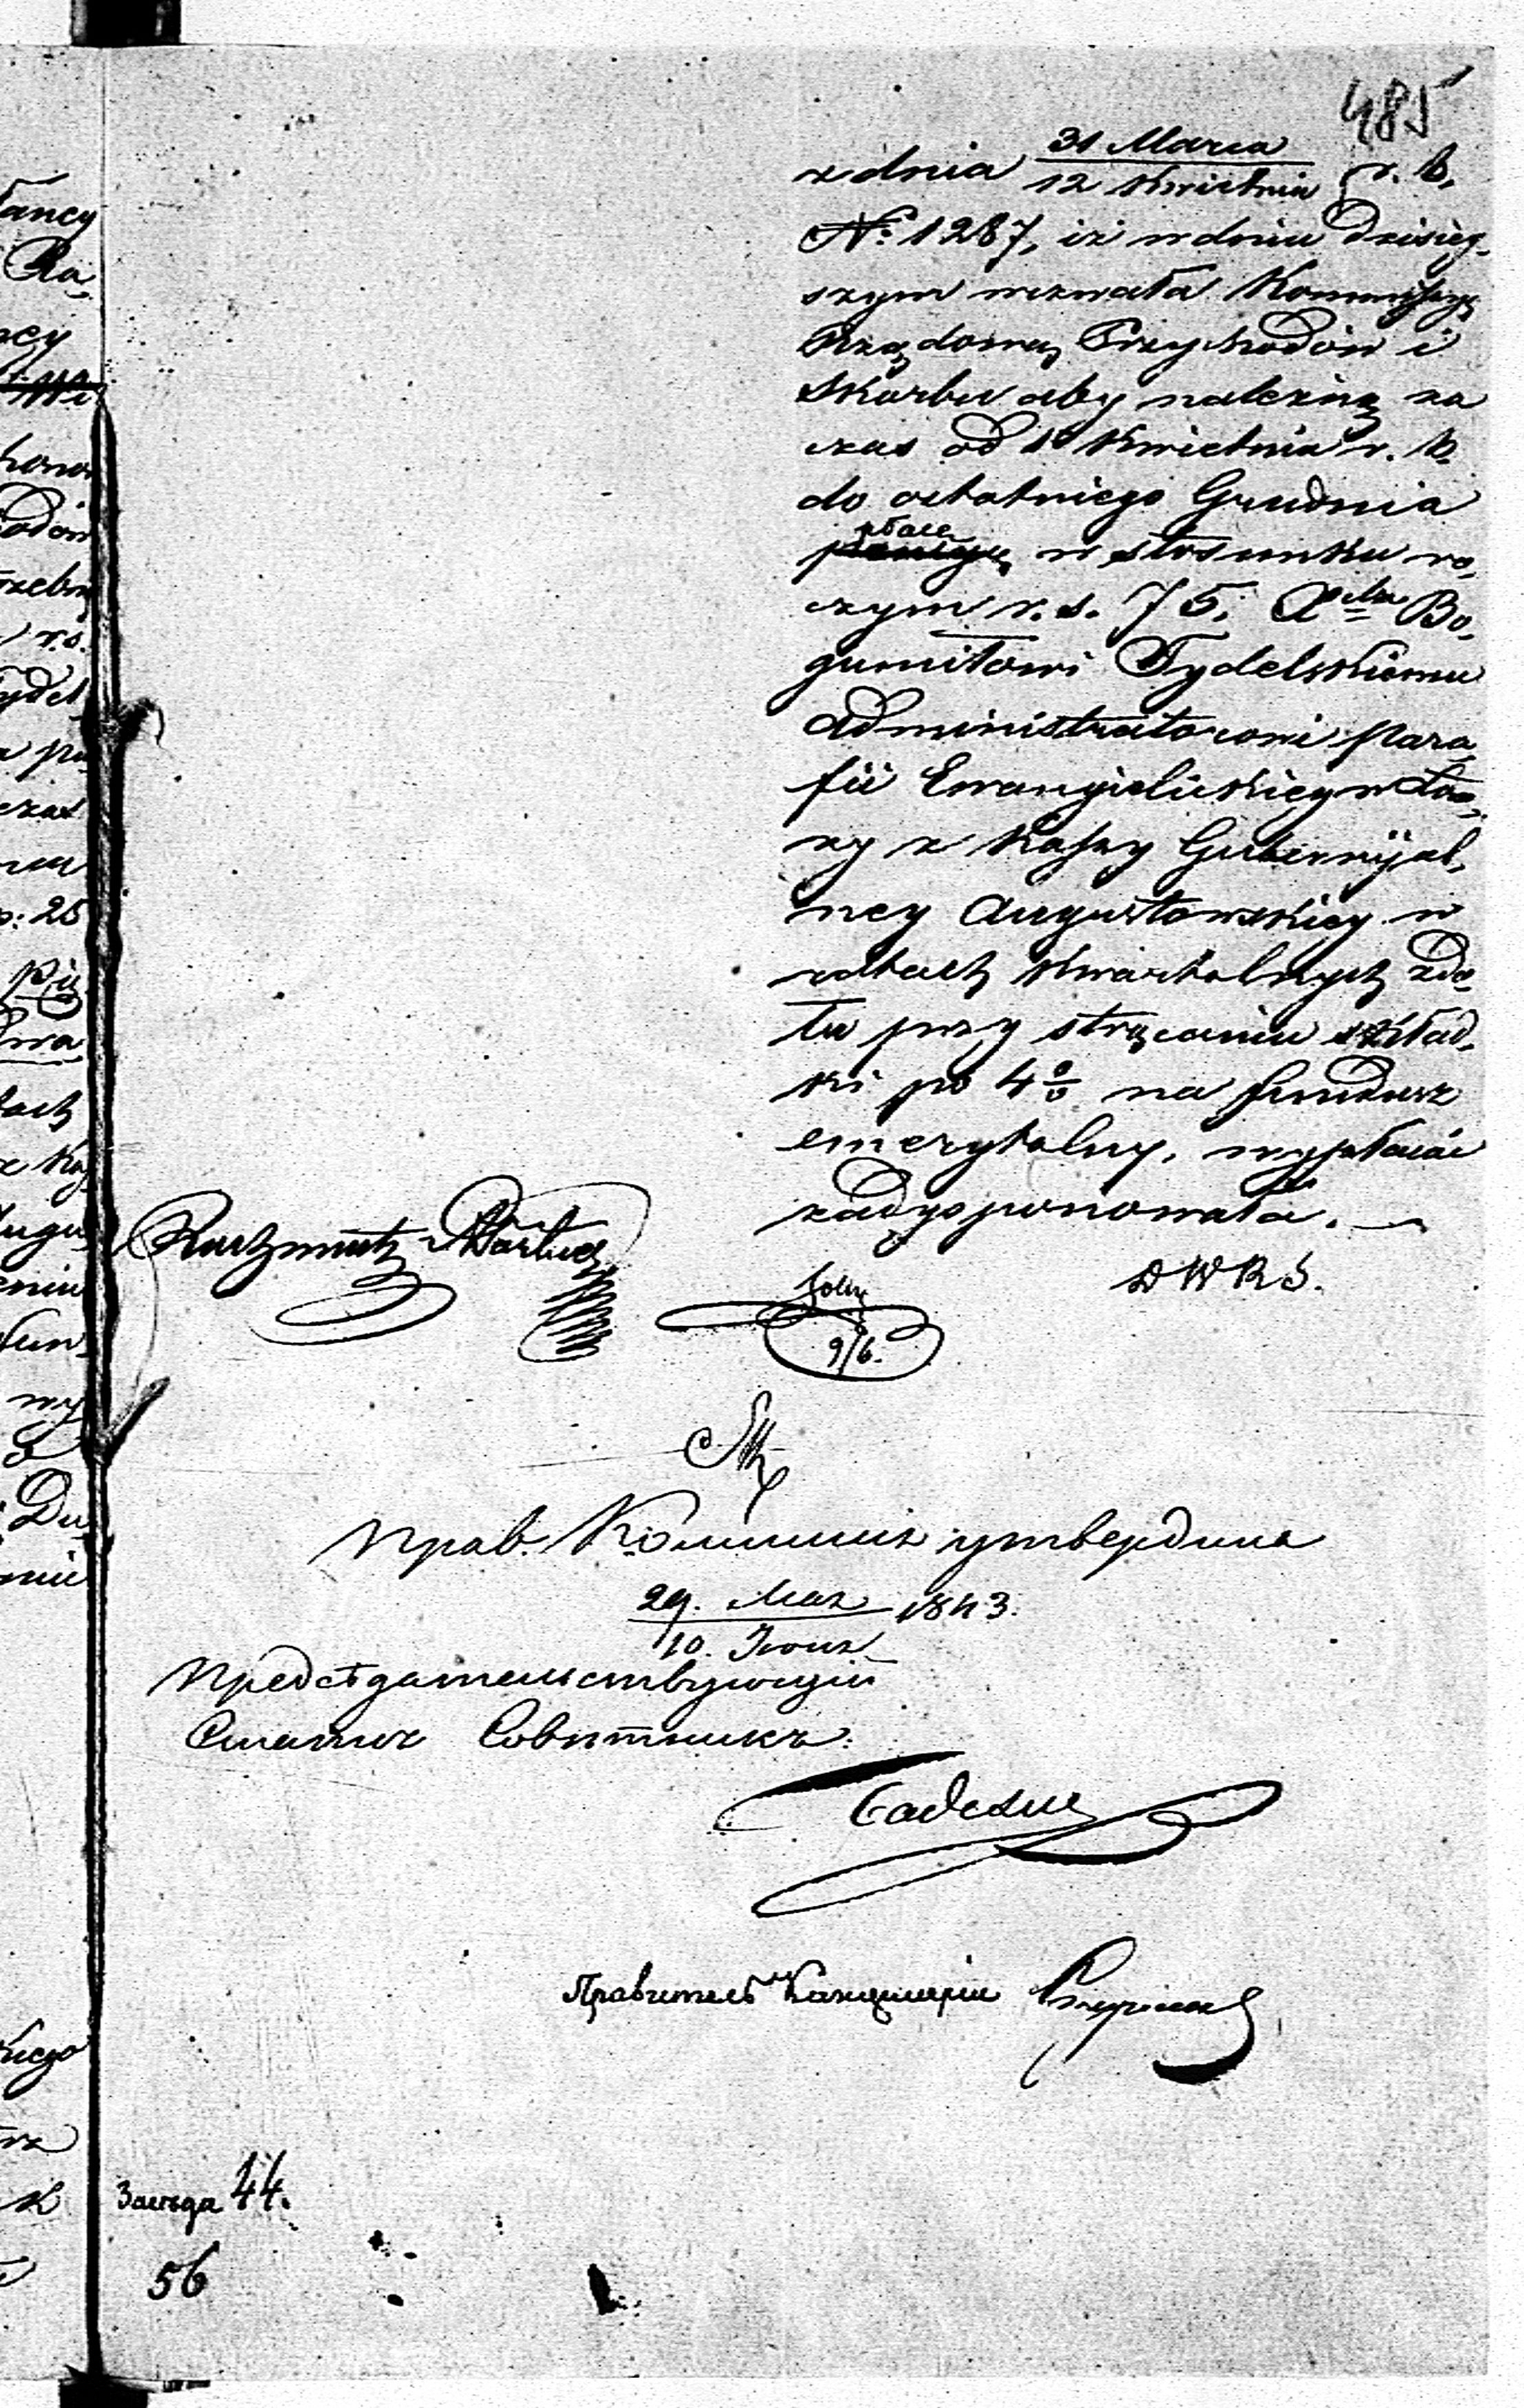 485
z dnia 31 Marca / 12 Kwietnia r. b.
№ 1287, iż w dniu dzisiey-
szym wezwała Kommissyę
Rządową Przychodów i
Skarbu aby należną za
czas od 1 Kwietnia r. b.
do ostatniego Grudnia
płacę w stosunku ro-
cznym r. s. 75. Xdzu Bo-
gumiłowi Tydelskiemu
Administratorowi Para-
fii Ewangielickiey w Łom-
ży z Kassy Gubernijal-
ney Augustowskiey w
ratach kwartalnych zdo-
łu przy strąceniu skład-
ki po 4 % na fundusz
emerytalny, wypłacać
zadysponowała.
D W R S.
9/6.
Прав. Коммисія утвердила
29. Мая / 10. Іюня 1843.
Предсѣдательствующій
Статск. Совѣтникъ
Правитель Канцеляріи
44.
56
fancy
Ra-
ney
honor
hodów
rzebn
r.s.
Tydel
a pa
czas
p: 25
dwa
tach
z Kas
Augu-
eniu
fun-
wy
Du-